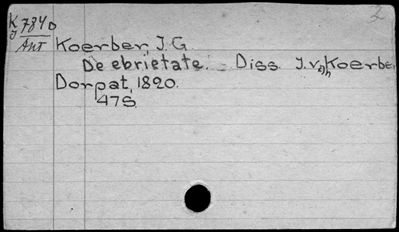 K 7840
J
Ant
Koerber, J. G
De ebrietate. - Diss J. v. Koerber
Dorpat, 1820.
47S.
2